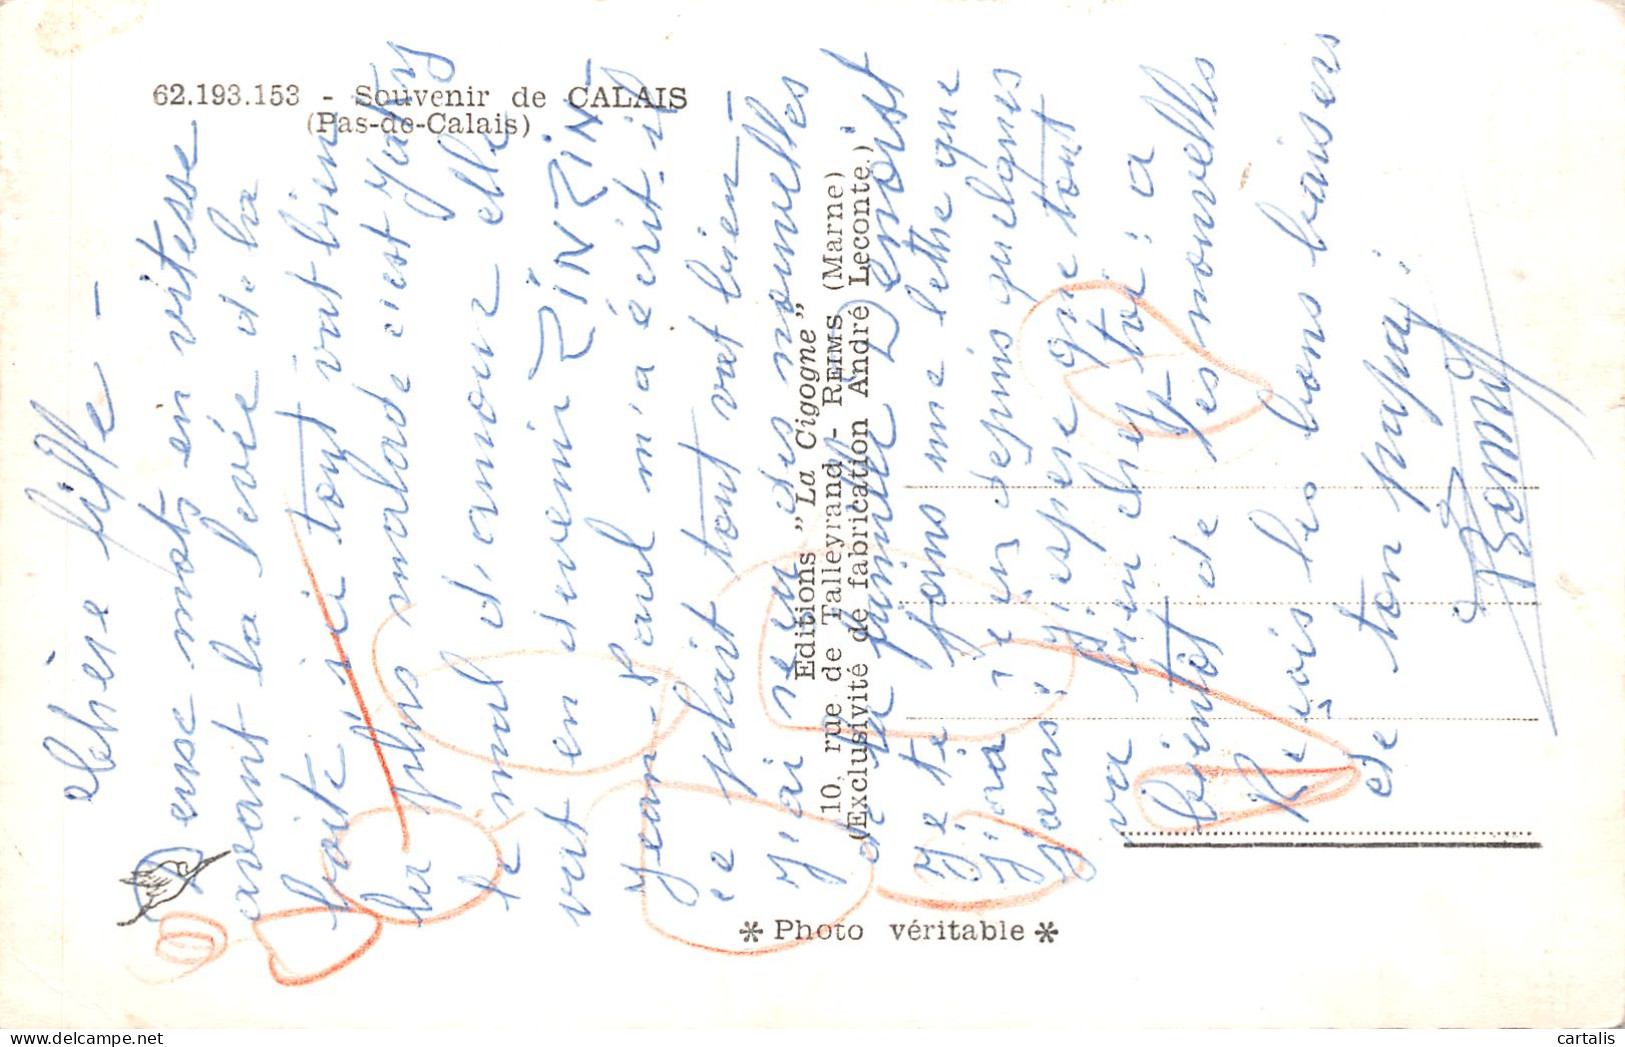 62.193.153 - Souvenir de CALAIS
(Pas-de-Calais)
Editions "La Cigogne"
10, rue de Talleyrand - REIMS (Marne)
(Exclusivité de fabrication André Leconte.)
* Photo véritable *
Chère fiffe -
Deuse mots en vitesse
avant la levée de la
boite ici tout vat bien
la plus malade c'est
le mal d'amour elle
vat en devenir ZINZIN -
Jean-Paul m'a écrit il
ce plait tout vat bien -
J'ai reu des nouvelles
de la famille Benoist
Je te fams une lettre que
J'orai reçu depuis quelques
Jours: J'espere que tout
va bien chez toi: a
bientot de tes nouvelles
Reçois les bons baisers
de ton papa: